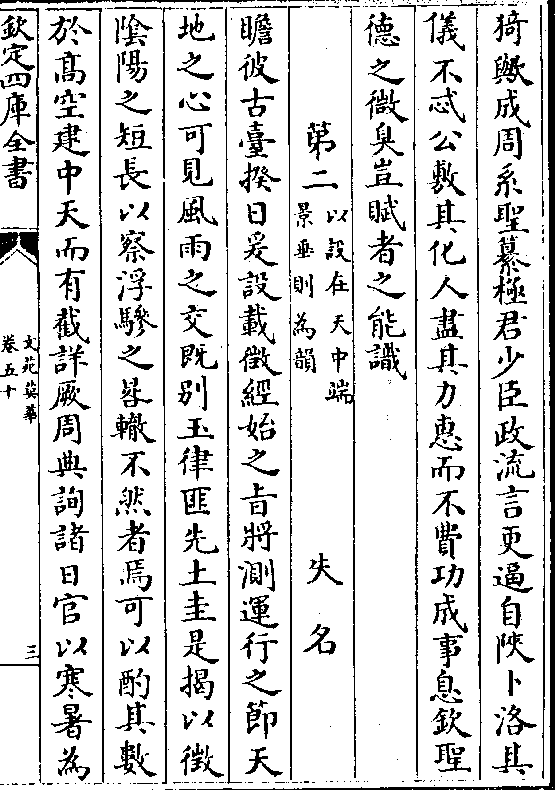 猗歟成周系聖纂極君少臣政流言更逼自陜卜洛其
儀不忒公敷其化人盡其力惠而不費功成事息欽聖
德之微臭豈賦者之能識
第二 以設在天中端
景垂則為韻 失名
瞻彼古臺揆日爰設載徵經始之旨將測運行之節天
地之心可見風雨之交既別玉律匪先土圭是揭以徵
陰陽之短長以察浮驂之晷轍不然者焉可以酌其數
於高空建中天而有截詳厥周典詢諸日官以寒暑為
欽定四庫全書
文苑英華
卷五十
三